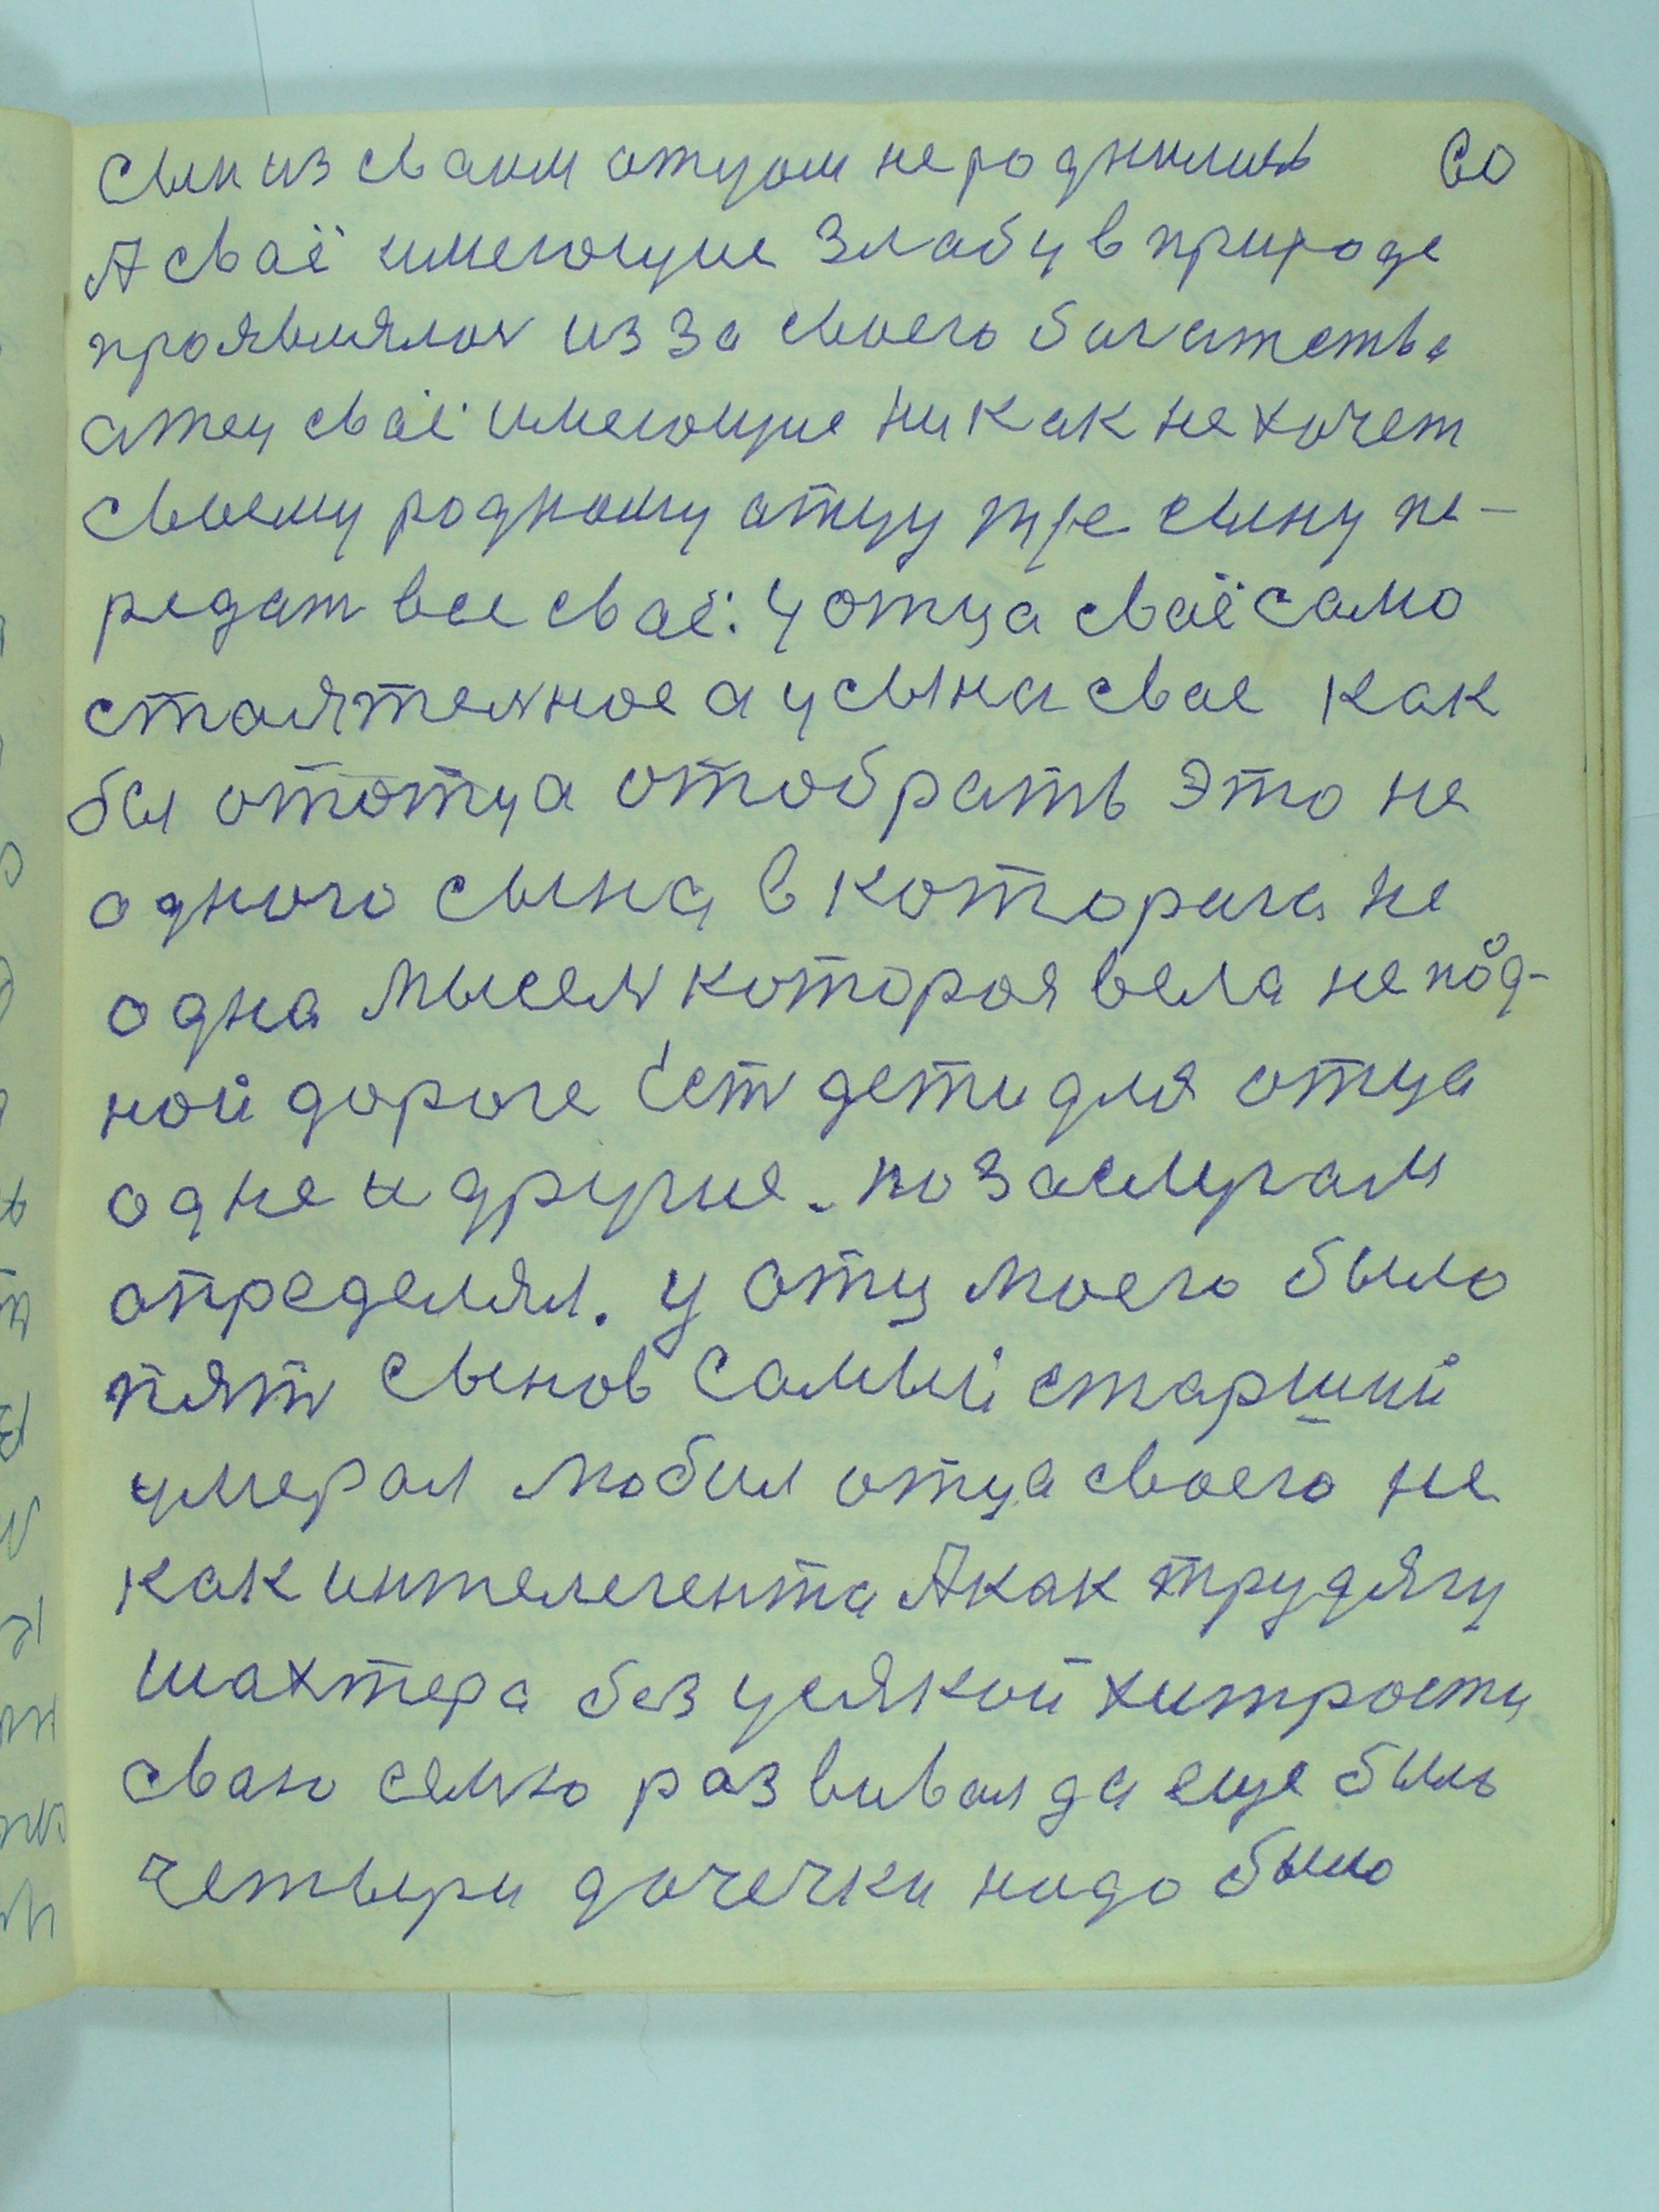 сын из сваим отцом нероднились 60
А сваё имеющие злабу в природе
проявлялся из за своего богатства
атец сваё имеющие никак не хочет
своему родному отцу тре сыну пе-
редат все сваё: у отца сваё само
стоятелное а у сына свае как
бы ототца отобрать это не
одного сына в которага не
одна мысел которая вела непод-
ной дороге Ест дети для отца
одне и другие. по заслугам
определял. у отц моего было
пят сынов самый старший
умерал любил отца своего не
как интелегента А как трудягу
шахтера без усякой хитрости
сваю семю развивал да еще было
четыри дочечки надо было